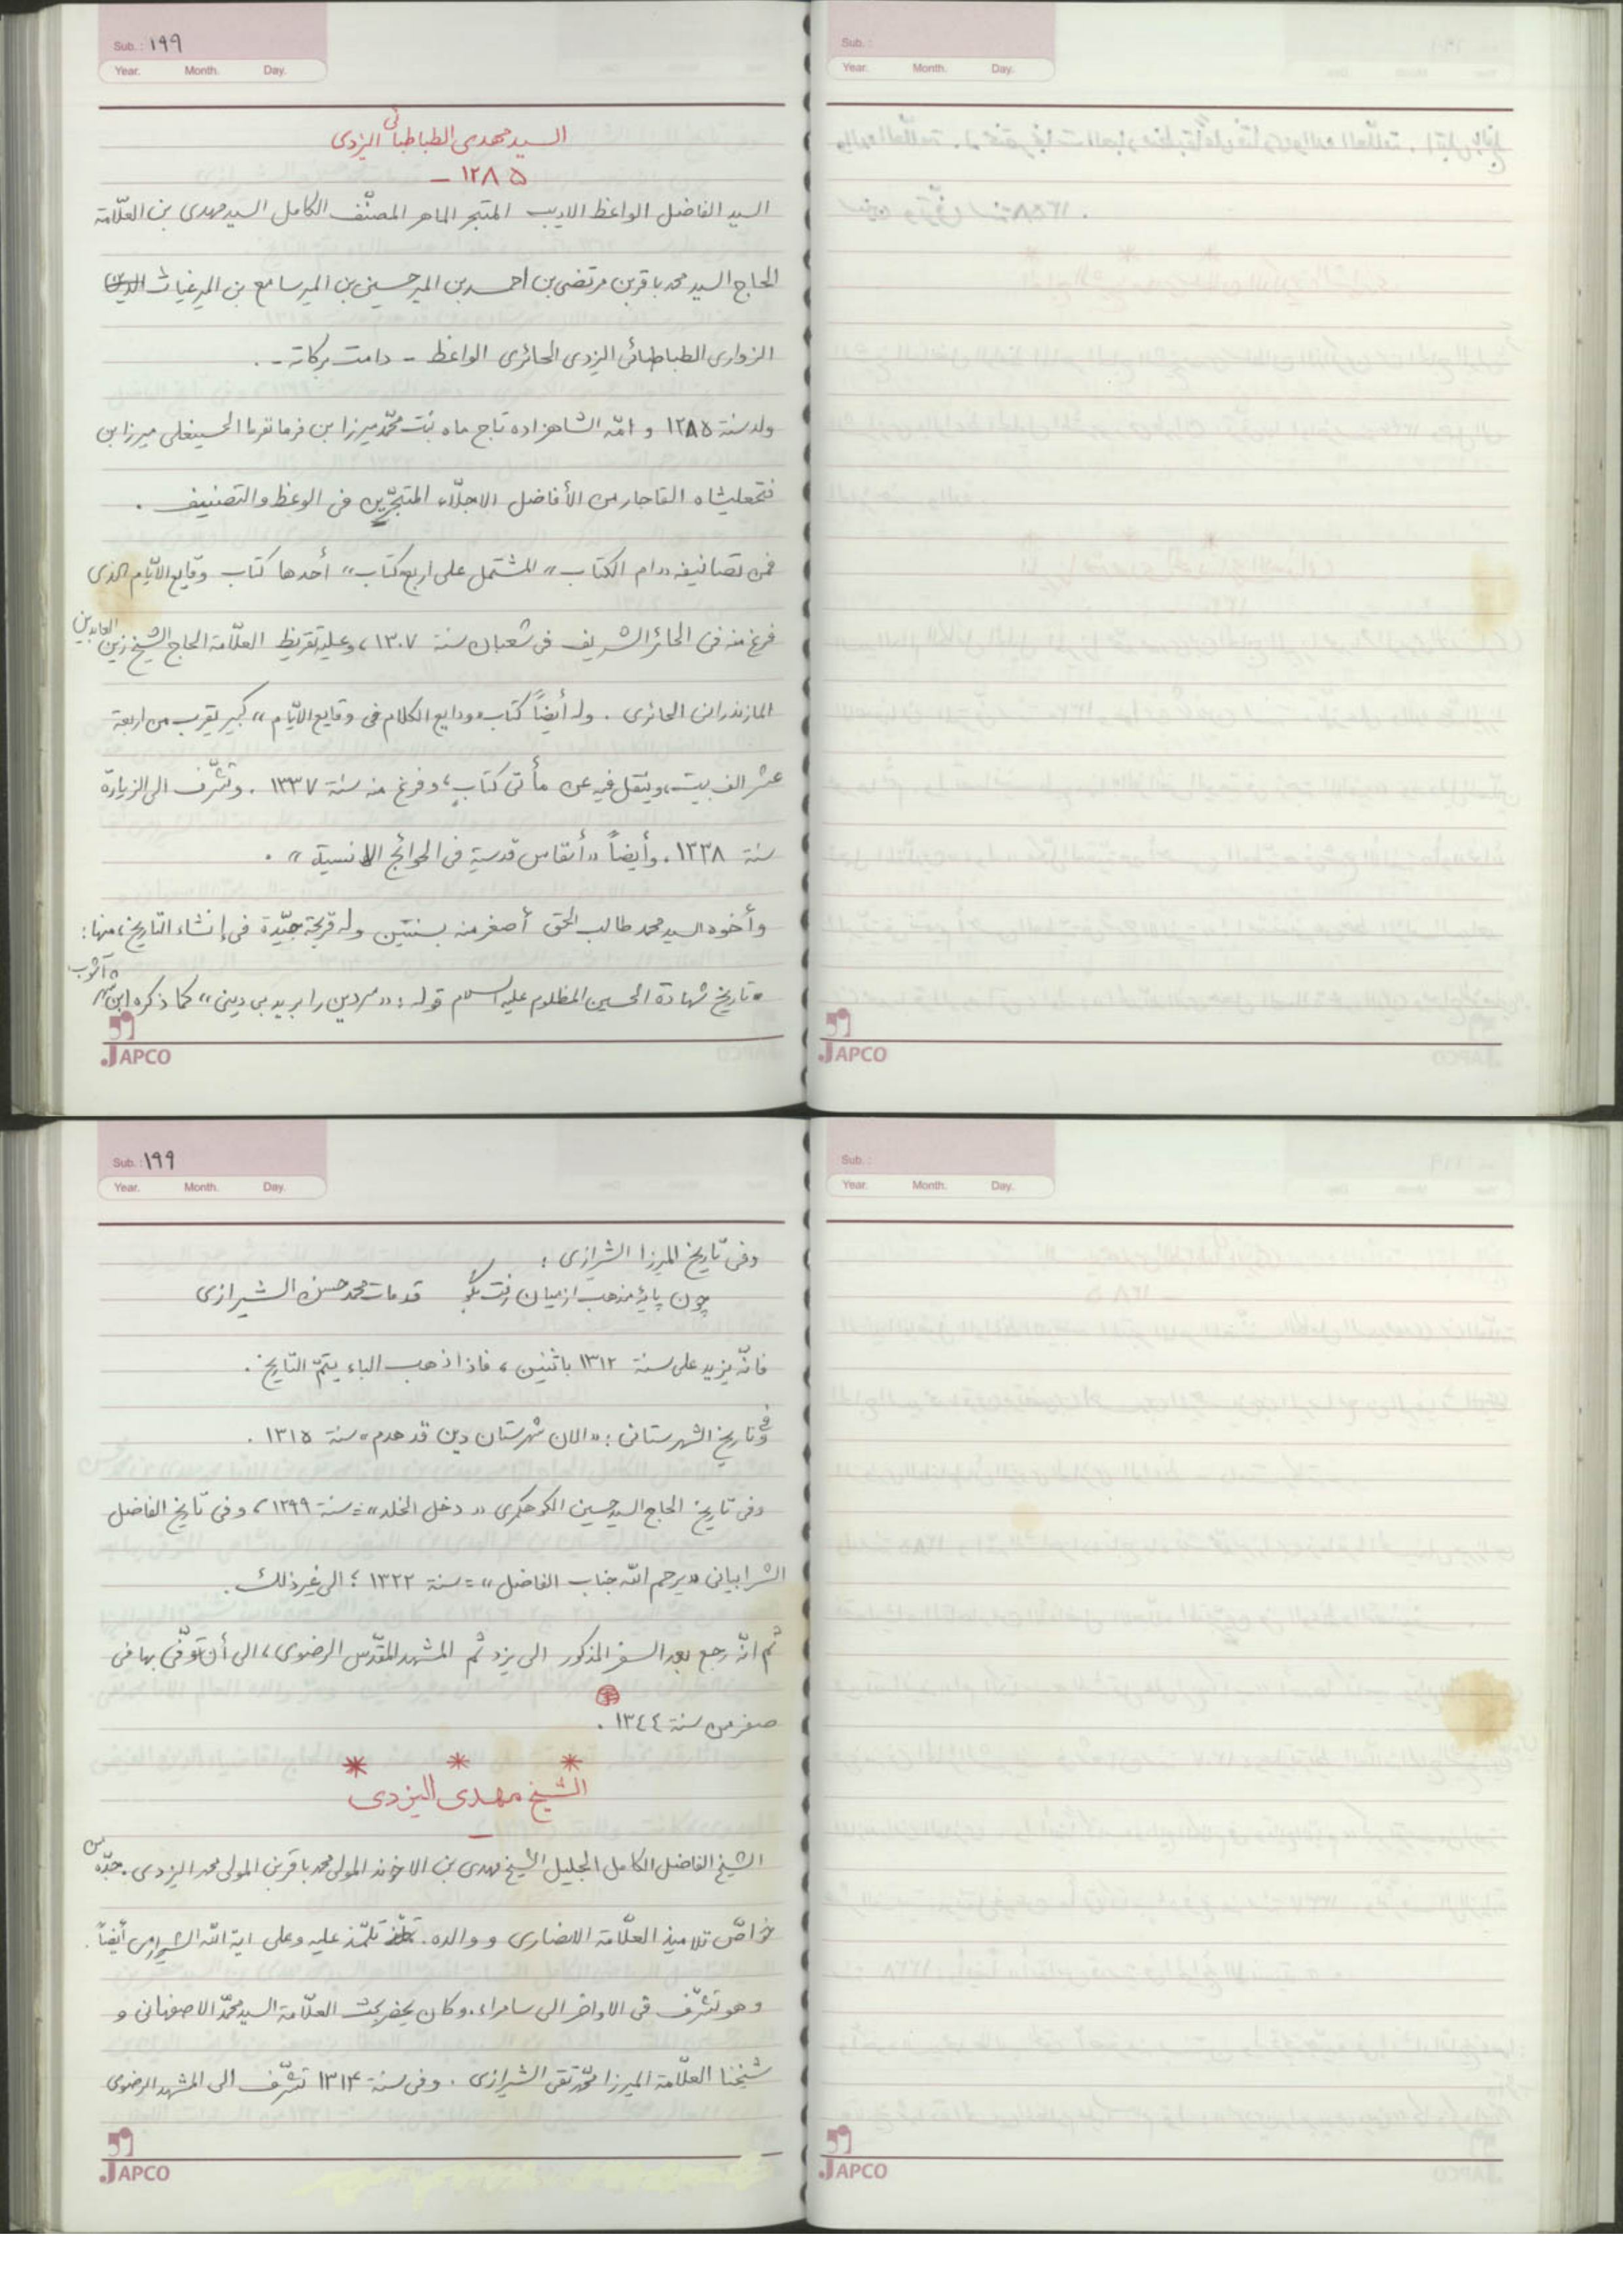 Sub.: ١٩٩
Year. Month. Day.
السيد مهدى الطباطبائى اليزدى
١٢٨٥ –
السيد الفاضل الواعظ الاديب المتبحر الماهر المصنّف الكامل السيد مهدى بن العلّامة
الحاج السيد محمد باقر بن مرتضى بن احمد بن المير حسين بن المير سامع بن المير غياث الدين
الزوارى الطباطبائى اليزدى الحائرى الواعظ - دامت بركاته -.
ولد سنة ١٢٨٥ و امّه الشاهزاده تاج ماه بنت محمّد ميرزا بن فرمانفرما الحسينعلى ميرزا بن
فتحعليشاه القاجار من الأفاضل الاجلّاء المتبحّرين فى الوعظ والتصنيف .
فمن تصانيفه «ام الكتاب» المشتمل على اربع كتاب» أحدها كتاب وقايع الايّام الذى
فرغ منه فى الحائر الشريف فى شعبان سنة ١٣٠٧، وعليه تقريظ العلّامة الحاج الشيخ زين العابدين
المازندرانى الحائرى . وله أيضاً كتاب «ودايع الكلام فى وقايع الايّام» كبير يقرب من اربعة
عشر الف بيت، وينقل فيه عن مأتى كتابٍ، وفرغ منه سنة ١٣٣٧ . وتشرّف الى الزيارة
سنة ١٣٣٨. وأيضاً «أنفاس قدسية فى الحوائج الانسية» .
وأخوه السيد محمد طالب الحق أصغر منه بسنتين وله قريحة جيّدة فى إنشاء التاريخ، منها:
• تاريخ شهادة الحسين المظلوم عليه السلام قوله: «سر دين را بريد بى دينى» كما ذكره ابن شهر آشوب
JAPCO
Sub.:
Year. Month. Day.
JAPCO
Sub.: ١٩٩
Year. Month. Day.
وفى تاريخ الميرزا الشيرازى :
چون پايۀ مذهب از ميان رفت بگو قد مات محمد حسن الشيرازى
فانّه يزيد على سنة ١٣١٢ باثنين، فاذا ذهب الباء يتمّ التاريخ .
وفى تاريخ الشهرستانى: «الان شهرستان دين قد هدم» سنة ١٣١٥ .
وفى تاريخ الحاج السيد حسين الكوهكمرى «دخل الخلد» = سنة ١٢٩٩، وفى تاريخ الفاضل
الشرابيانى «يرحم الله جناب الفاضل» = سنة ١٣٢٢؛ الى غير ذلك .
ثم انّه رجع بعد السفر المذكور الى يزد ثم المشهد المقدّس الرضوى، الى أن توفّى بها فى
صفر من سنة ١٣٤٤ .
* * *
الشيخ مهدى اليزدى
–
الشيخ الفاضل الكامل الجليل الشيخ مهدى بن الاخوند المولى محمد باقر بن المولى محمد اليزدى. جدّه من
خواصّ تلاميذ العلّامة الانصارى و والده. تلمّذ عليه وعلى اية الله الشيرازى أيضاً.
وهو تشرّف فى الاواخر الى سامراء. وكان يحضر بحث العلّامة السيد محمّد الاصفهانى و
شيخنا العلّامة الميرزا محمّد تقى الشيرازى . وفى سنة ١٣١٤ تشرّف الى المشهد الرضوى
JAPCO
Sub.:
Year. Month. Day.
JAPCO